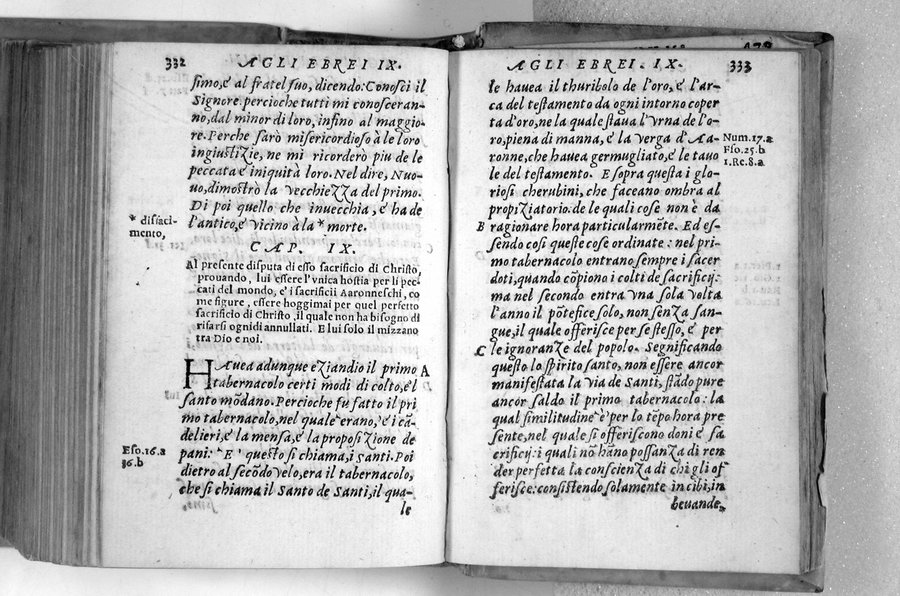 332
AGLI EBREI IX.
simo, e' al fratel suo, dicendo: Conosci il
Signore. percioche tutti mi conosceran-
no, dal minor di loro, infino al maggio-
re. Perche sarò misericordioso à le loro
ingiustizie, ne mi ricorderò piu de le
peccata e' iniquità loro. Nel dire, Nuo-
uo, dimostrò la vecchiezza del primo.
Di poi quello che inuecchia, e' ha de
l'antico, e' vicino à la * morte.
* disfaci-
mento,
CAP. IX.
Al presente disputa di esso sacrificio di Christo,
prouando, lui essere l'vnica hostia per li pec-
cati del mondo, e' i sacrificii Aaronneschi, co
me figure, essere hoggimai per quel perfetto
sacrificio di Christo, il quale non ha bisogno di
rifarsi ogni dì annullati. E lui solo il mizzano
tra Dio e noi.
HAuea adunque eziandio il primo A
tabernacolo certi modi di colto, e'l
santo mōdano. Percioche fu fatto il pri
mo tabernacolo, nel quale erano, e' i cā-
delieri, e' la mensa, e' la proposizione de
pani: E' questo si chiama, i Santi. Poi
dietro al secōdo velo, era il tabernacolo,
che si chiama il Santo de Santi, il qua-
le
Eso. 16.a
36.b
AGLI EBREI. IX.
333
le hauea il thuribolo de l'oro, e' l'ar-
ca del testamento da ogni intorno coper
ta d'oro, ne la quale staua l'Vrna de l'o-
ro, piena di manna, e' la verga d'Aa-
ronne, che hauea germugliato, e' le tauo
le del testamento. E sopra questa i glo-
riosi cherubini, che faceano ombra al
propiziatorio. de le quali cose non è da
B ragionare hora particularmēte. Ed es-
sendo così queste cose ordinate: nel pri-
mo tabernacolo entrano sempre i sacer
doti, quando cōpiono i colti de sacrificij:
ma nel secondo entra vna sola volta
l'anno il pōtefice solo, non senza san-
gue, il quale offerisce per se stesso, e' per
C le ignoranze del popolo. Segnificando
questo lo spirito santo, non essere ancor
manifestata la via de Santi, stādo pure
ancor saldo il primo tabernacolo: la
qual similitudine è per lo tēpo hora pre
sente, nel quale si offeriscono doni e' sa
crificij: i quali nō hāno possanza di ren
der perfetta la conscienza di chi gli of
ferisce: consistendo solamente in cibi, in
beuande,
Num. 17.a
Eso. 25.b
1. Re. 8.a